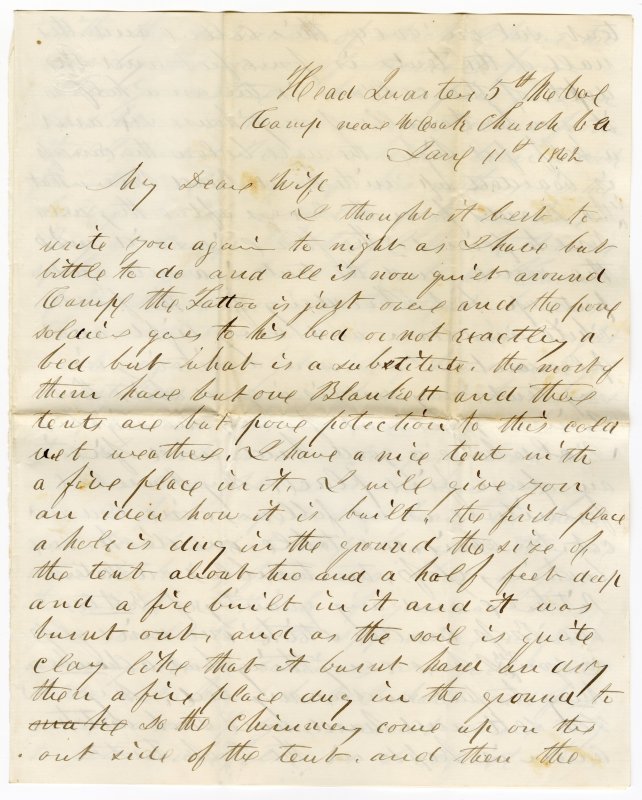 Head Quarters 5th Me Vol
Camp near W Oak Church Va
Jany 11th 1862
My Dear Wife
I thought it best to
write you again to night as I have but
little to do and all is now quiet around
Camp the Tattoo is just over and the pore
soldier goes to his bed or not exactley a
bed but what is a substitute. the most of
them have but one Blankett and thes
tents are but pore potection to this cold
wet weather. I have a nice tent with
a fire place in it. I will give you
an idea how it is built. the first place
a hole is dug in the ground the size of
the tent about two and a half feet deep
and a fire built in it and it was
burnt out. and as the soil is quite
clay like that it burnt hard an dry
then a fire place dug in the ground to
make so the Chimney come up on the
out side of the tent. and then the